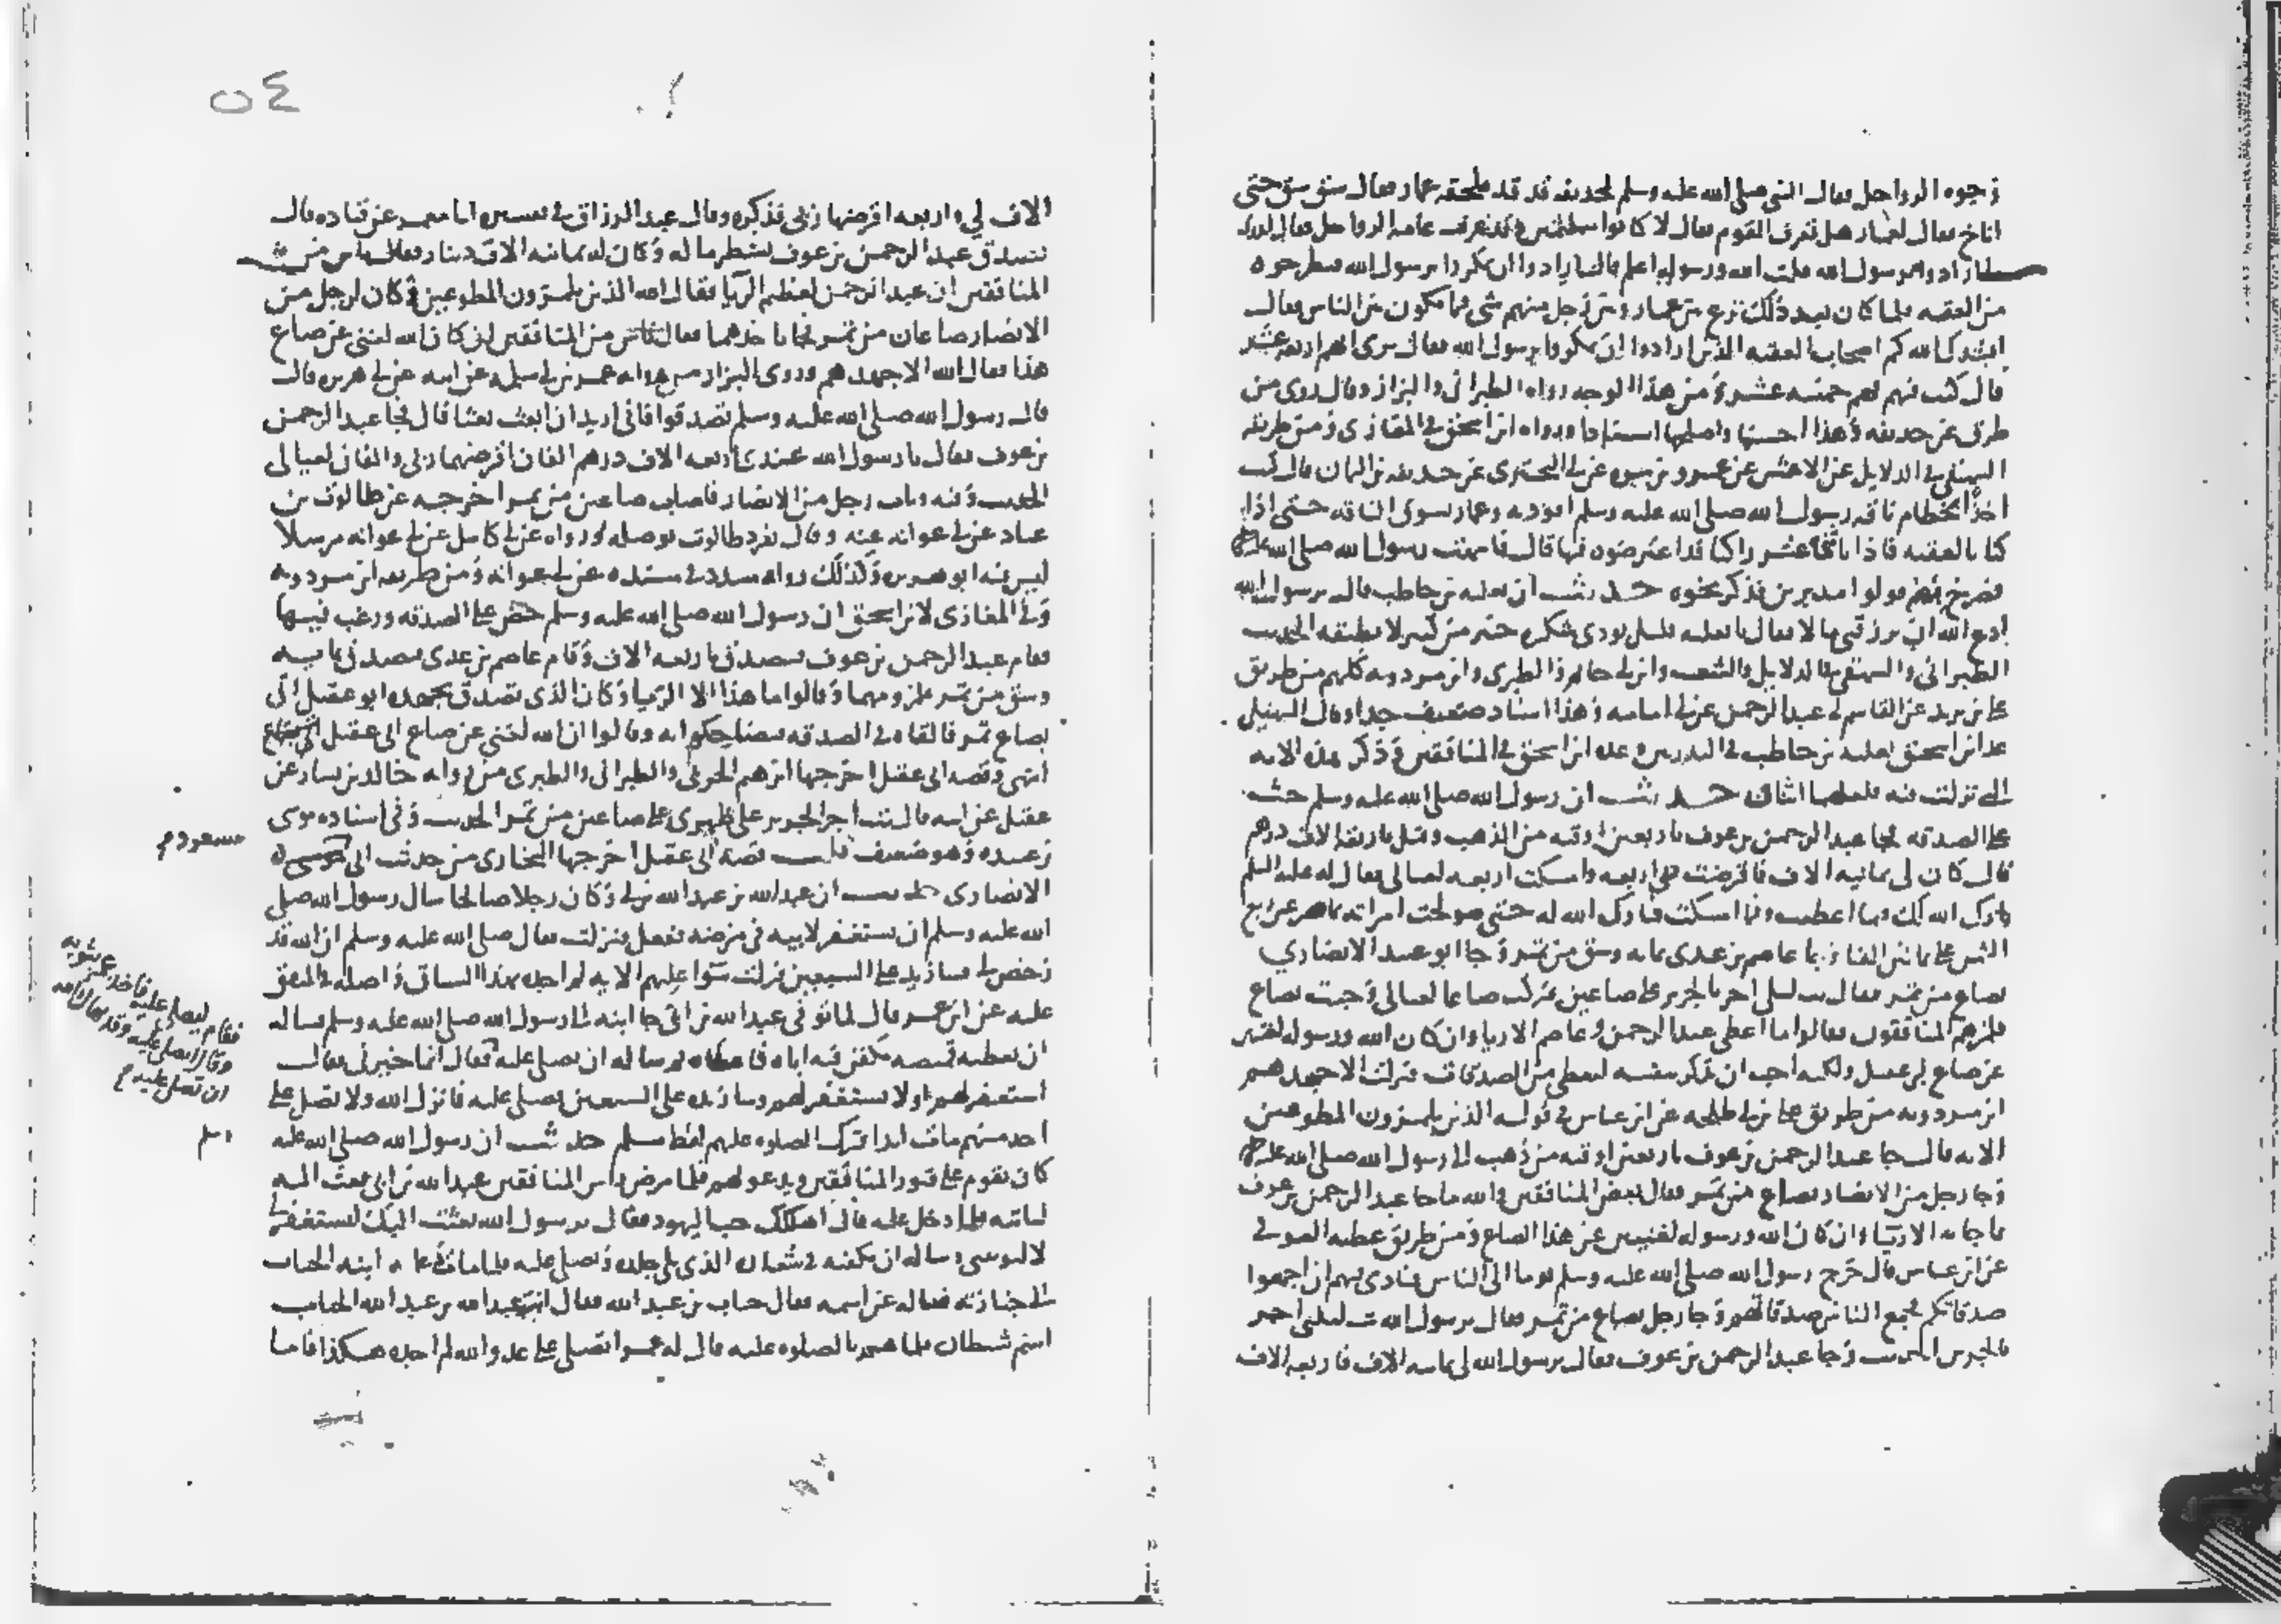 وجوه الرواحل فقال النبي صلى الله عليه وسلم لحذيفة قد قد فلحقه عمار فقال سق سق حتى
اناخ فقال لعمار هل تعرف القوم فقال لا كانوا متلثمين وقد عرفت عامة الرواحل فقال
ارادوا برسول الله قلت الله ورسوله اعلم قال ارادوا ان يمكروا برسول الله فيطرحوه
من العقبة فلما كان بعد ذلك نزع بين عمار وبين رجل منهم شي مما يكون بين الناس فقال
انشدك الله كم اصحاب العقبة الذين ارادوا ان يمكروا برسول الله فقال نرى انهم اربعة عشر
قال فان كنت فيهم فهم خمسة عشر ومن هذا الوجه رواه الطبراني والبزار وقال روي من
طرق عن حذيفة وهذا احسنها واصلحها اسنادا ورواه ابن اسحق في المغازي ومن طريقه
البيهقي في الدلايل عن الاعمش عن عمرو بن مرة عن ابي البختري عن حذيفة بن اليمان قال كنت
اخذا بخطام ناقة رسول الله صلى الله عليه وسلم اقود به وعمار يسوق الناقة حتى اذا
كنا بالعقبة فاذا باثنى عشر راكبا قد اعترضوه فيها قال فانبهت رسول الله صلى الله عليه وسلم
فصرخ بهم فولوا مدبرين فذكر نحوه حديث ان ثعلبة بن حاطب قال يا رسول الله
ادع الله ان يرزقني مالا فقال يا ثعلبة قليل تودي شكره خير من كثير لا تطيقه الحديث
الطبراني والبيهقي في الدلايل والشعب وابن ابي حاتم والطبري وابن مردويه كلهم من طريق
علي بن يزيد عن القاسم بن عبد الرحمن عن ابي امامة وهذا اسناد ضعيف جدا وقال السهيلي
عد ابن اسحق ثعلبة بن حاطب في البدريين وعده ابن اسحق في المنافقين وذكر هذه الاية
التي نزلت فيه فلعلهما اثنان حديث ان رسول الله صلى الله عليه وسلم حث
على الصدقة فجا عبد الرحمن بن عوف باربعين اوقية من الذهب وقيل باربعة الاف درهم
قال كان لي ثمانية الاف فاقرضت ربي اربعة وامسكت اربعة لعيالي فقال له عليه السلم
بارك الله لك فيما اعطيت وفيما امسكت فبارك الله له حتى صولحت امراته تماضر عن ربع
الثمن على ثمانين الفا وجا عاصم بن عدي بمائة وسق من تمر وجا ابو عقيل الانصاري
بصاع من تمر فقال بت ليلتي اجر بالجرير على صاعين فتركت صاعا لعيالي وجيت بصاع
فلمزهم المنافقون فقالوا ما اعطى عبد الرحمن وعاصم الا رياء وان كان الله ورسوله لغنيين
عن صاع ابي عقيل ولكنه احب ان يذكر بنفسه ليعطى من الصدقات فنزلت الا جهدهم
ابن مردويه من طريق علي بن ابي طلحة عن ابن عباس في قوله الذين يلمزون المطوعين
الاية قال جا عبد الرحمن بن عوف باربعين اوقية من ذهب الى رسول الله صلى الله عليه وسلم
وجا رجل من الانصار بصاع من تمر فقال بعض المنافقين والله ما جا عبد الرحمن بن عوف
بما جا به الا رياء وان كان الله ورسوله لغنيين عن هذا الصاع ومن طريق عطية العوفي
عن ابن عباس قال خرج رسول الله صلى الله عليه وسلم يوما الى الناس فنادى بهم ان اجمعوا
صدقاتكم فجمع الناس صدقاتهم وجا رجل بصاع من تمر فقال يرسول الله بت ليلتي اجر
بالجرير الحديث وجا عبد الرحمن بن عوف فقال يرسول الله لي ثمانية الاف فاربعة الاف
٥٤
الاف لي واربعة اقرضها ربي فذكره وقال عبد الرزاق في تفسيره انا معمر عن قتادة قال
تصدق عبد الرحمن بن عوف بشطر ماله وكان له ثمانية الاف دينار فقال ناس من
المنافقين ان عبد الرحمن لعظيم الريا فقال الله الذين يلمزون المطوعين وكان لرجل من
الانصار صاعان من تمر فجا باحدهما فقال ناس من المنافقين ان كان الله لغني عن صاع
هذا فقال الله الا جهدهم وروى البزار من رواية عمر بن ابي سلمة عن ابيه عن ابي هريرة قال
قال رسول الله صلى الله عليه وسلم تصدقوا فاني اريد ان ابعث بعثا قال فجا عبد الرحمن
بن عوف فقال يا رسول الله عندي اربعة الاف درهم الفان اقرضهما ربي والفان لعيالي
الحديث وفيه وبات رجل من الانصار فاصاب صاعين من تمر اخرجه عن طالوت بن
عباد عن ابي عوانة عنه وقال تفرد طالوت بوصله ورواه عن ابي كامل عن ابي عوانة مرسلا
ليس فيه ابو هريرة وكذلك رواه مسدد في مسنده عن ابي عوانة ومن طريقه ابن مردويه
وفي المغازي لابن اسحق ان رسول الله صلى الله عليه وسلم حض على الصدقة ورغب فيها
فقام عبد الرحمن بن عوف فتصدق باربعة الاف وقام عاصم بن عدي فصدق بماية
وسق من تمر فلمزوهما وقالوا ما هذا الا الريا وكان الذي تصدق بجهده ابو عقيل اتى
بصاع تمر فالقاه في الصدقة فتضاحكوا به وقالوا ان الله لغني عن صاع ابي عقيل
انتهى وقصة ابي عقيل اخرجها ابرهيم الحربي والطبراني والطبري من رواية خالد بن يسار عن
عقيل عن ابيه قال بت اجر الجرير على ظهري على صاعين من تمر الحديث وفي اسناده موسى
بن عبيدة وهو ضعيف قلت قصة ابي عقيل اخرجها البخاري من حديث ابي
مسعود م
الانصاري حديث ان عبد الله بن عبد الله بن ابي وكان رجلا صالحا سال رسول الله صلى
الله عليه وسلم ان يستغفر لابيه في مرضه ففعل فنزلت فقال صلى الله عليه وسلم ان الله قد
رخص لي فسازيد على السبعين فنزلت سوا عليهم الاية لم اجده بهذا السياق واصله في المتفق
عليه عن ابن عمر قال لما توفي عبد الله بن ابي جا ابنه الى رسول الله صلى الله عليه وسلم فساله
ان يعطيه قميصه يكفن فيه اباه فاعطاه ثم ساله ان يصلي عليه فقال انما خيرني فقال
فقام ليصلي عليه فاخذ عمر بثوبه
وقال اتصلي عليه وقد نهاك الله
ان تصلي عليه م
استغفر لهم او لا تستغفر لهم وسازيده على السبعين فصلى عليه فانزل الله ولا تصل على
احد منهم مات ابدا فترك الصلوة عليهم لفظ مسلم حديث ان رسول الله صلى الله عليه
كان يقوم على قبور المنافقين ويدعو لهم فلما مرض راس المنافقين عبد الله بن ابي بعث اليه
لياتيه فلما دخل عليه قال اهلكك حب اليهود فقال يرسول الله بعثت اليك لتستغفر لي
لا لتونبني وساله ان يكفنه في شعاره الذي يلي جلده ويصلي عليه فلما مات دعاه ابنه الحباب
الى جنازته فساله عن اسمه فقال حباب بن عبد الله فقال انت عبد الله بن عبد الله الحباب
اسم شيطان فلما هم بالصلوة عليه قال له عمر اتصلي على عدو الله لم اجده هكذا فاما